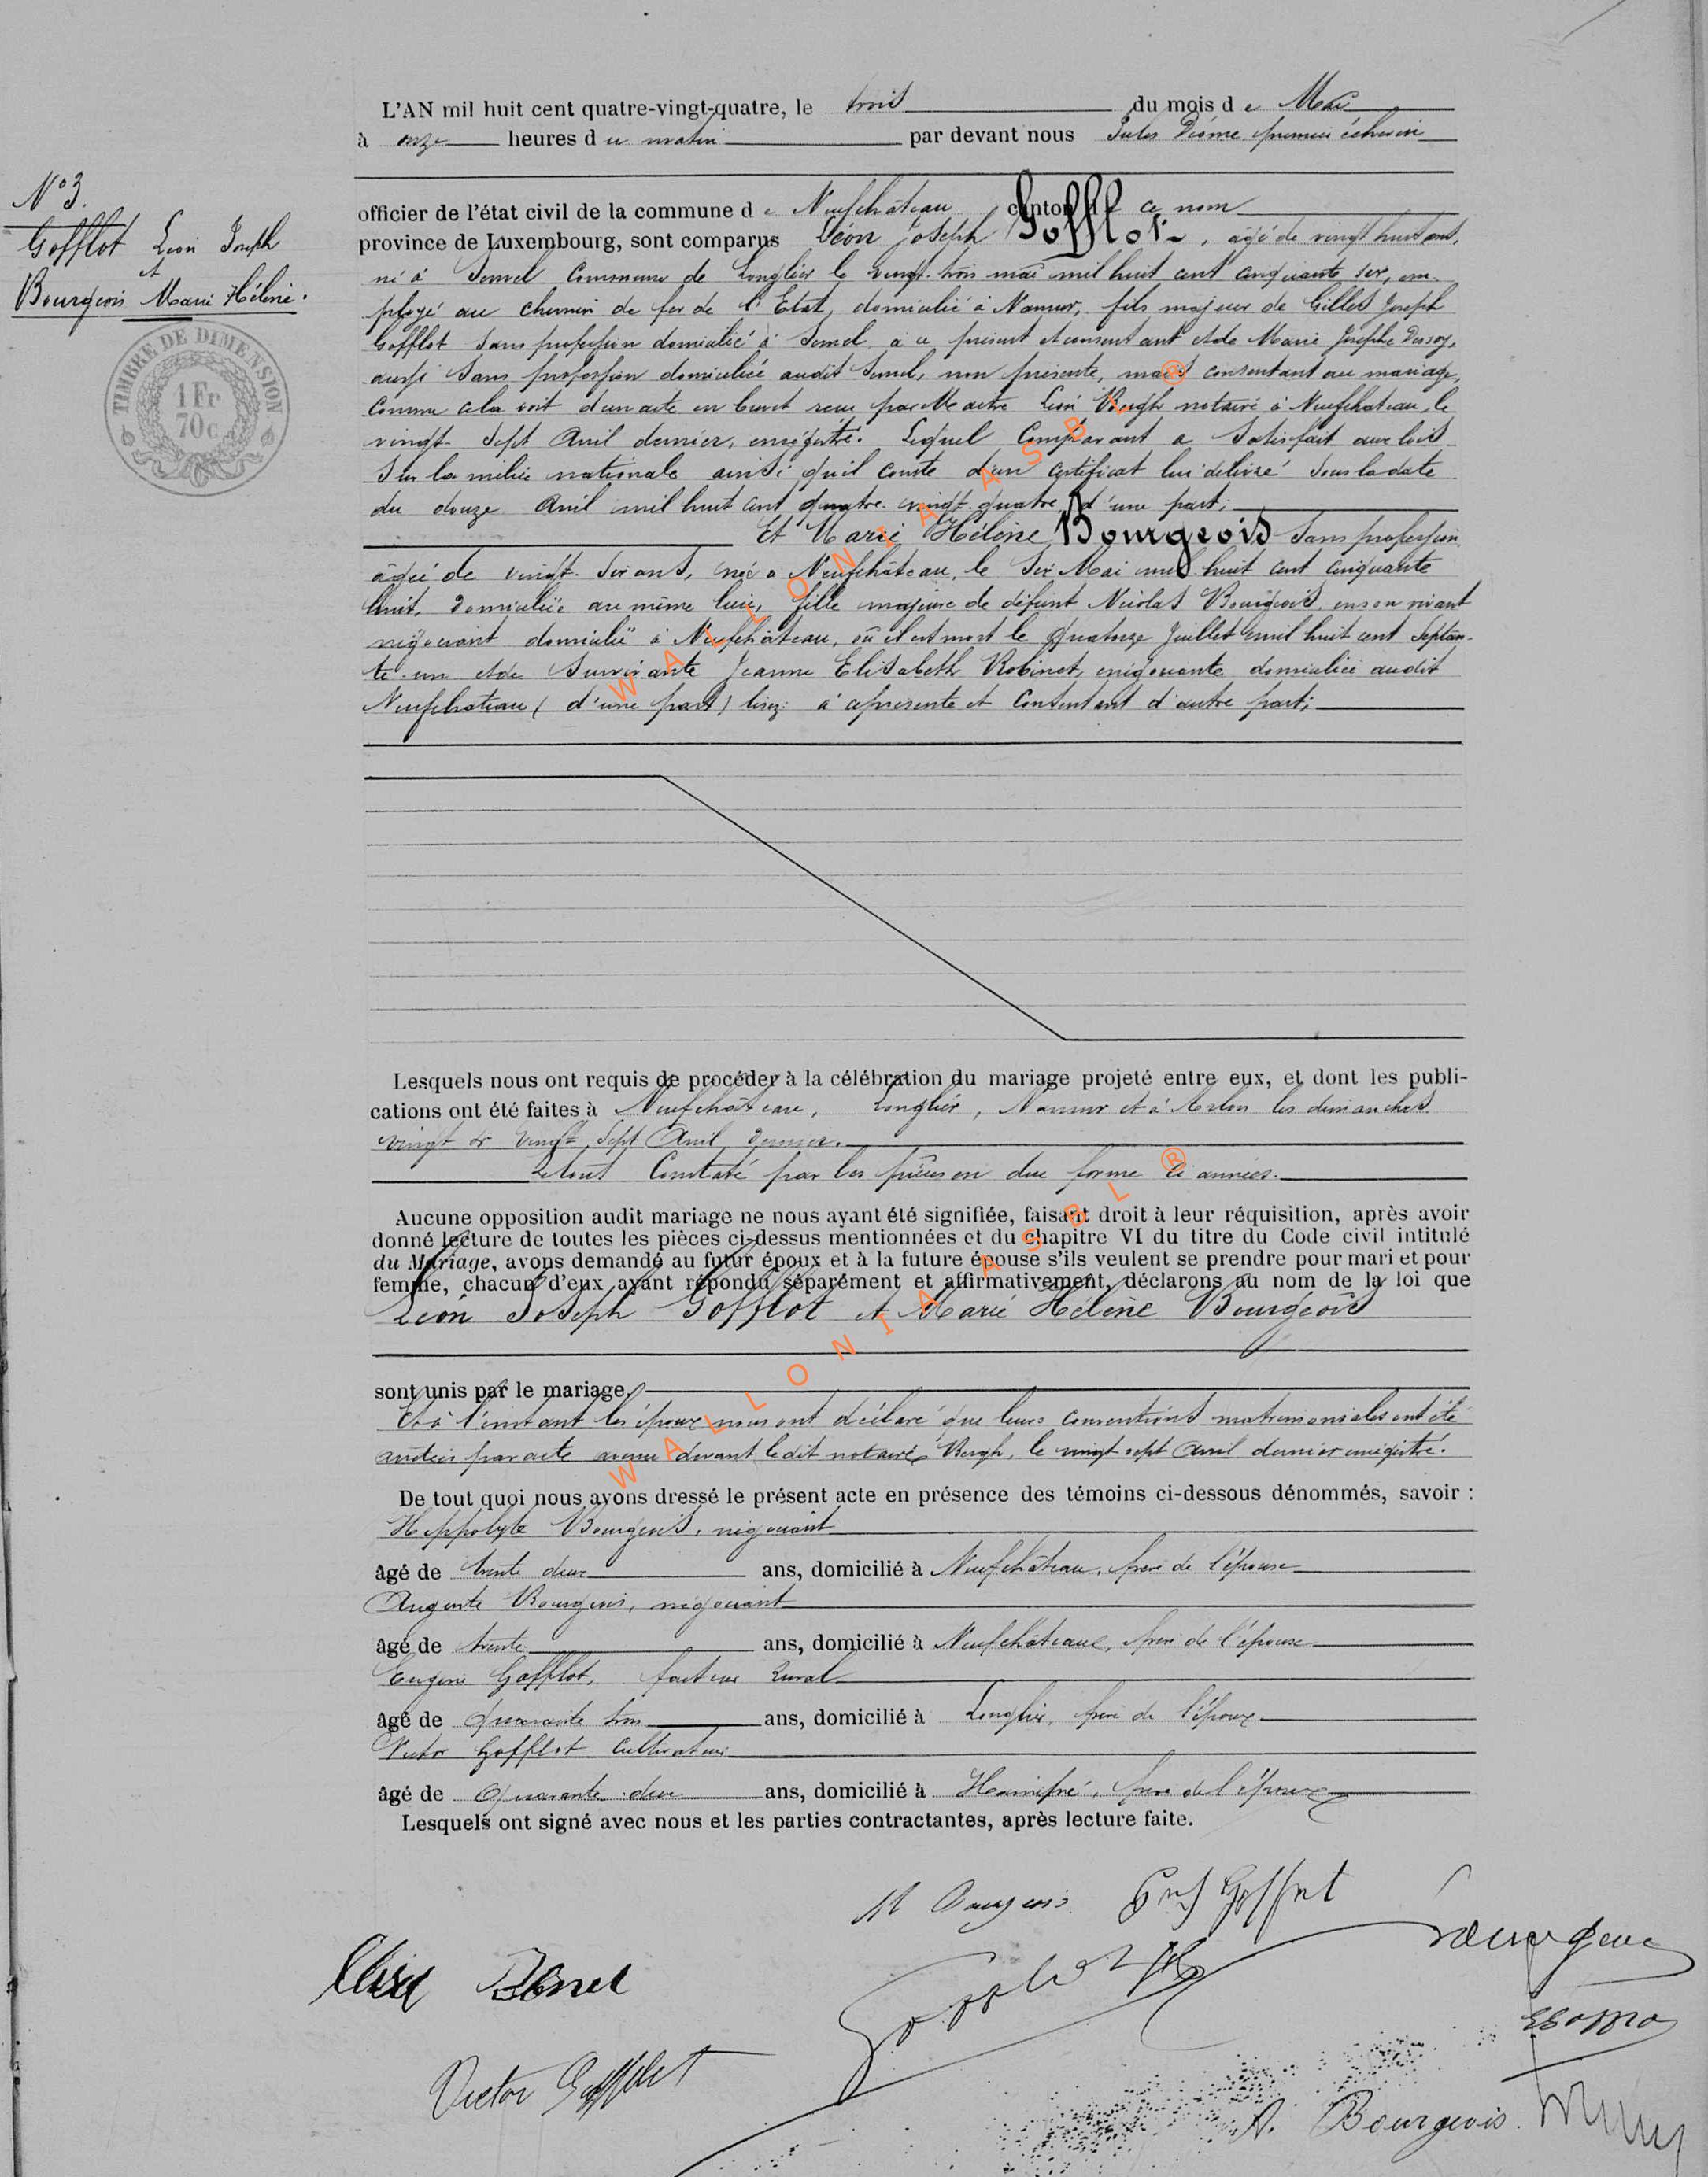 L'AN mil huit cent quatre-vingt-quatre, le trois du mois de Mai
à onze heures du matin par devant nous Jules premier échevin
N° 3.
Gofflot Léon Joseph
et
Bourgeois Marie Hélène.
TIMBRE DE DIMENSION
1 Fr
70c
officier de l'état civil de la commune de Neufchâteau canton de ce nom
province de Luxembourg, sont comparus Léon Joseph Gofflot, âgé de vingt huit ans,
né à Semel Commune de Longlier le vingt-trois mai mil huit cent cinquante six, em-
ployé au chemin de fer de l'Etat, domicilié à Namur, fils majeur de Gilles Joseph
Gofflot sans profession domicilié à Semel à ce présent et consentant et de Marie Josephe Dessoy,
aussi sans profession domiciliée audit Semel, non présente, mais consentant au mariage,
comme cela voit d'un acte en brevet reçu par Maître Léon Bergh notaire à Neufchateau, le
vingt-sept Avril dernier, enrégistré. Lequel Comparant a satisfait aux lois
sur la milice nationale ainsi qu'il conste d'un certificat lui délivré sous la date
du douze Avril mil huit cent quatre-vingt-quatre d'une part;
Et Marie Hélène Bourgeois sans profession
âgée de vingt-six ans, née à Neufchâteau, le six Mai mil huit cent cinquante
huit, domiciliée au même lieu, fille majeure de défunt Nicolas Bourgeois, en son vivant
négociant domicilié à Neufchâteau, où il est mort le quatorze Juillet mil huit cent septan-
te-un et de survivante Jeanne Elisabeth Robinet, négociante domiciliée audit
Neufchateau (d'une part) lisez: à ce présente et consentant d'autre part;
Lesquels nous ont requis de procéder à la célébration du mariage projeté entre eux, et dont les publi-
cations ont été faites à Neufchâteau, Longlier, Namur et à Arlon les dimanches
vingt & vingt-sept Avril dernier.
Le tout Constaté par les pièces en due forme ci annéxées.
Aucune opposition audit mariage ne nous ayant été signifiée, faisant droit à leur réquisition, après avoir
donné lecture de toutes les pièces ci-dessus mentionnées et du chapitre VI du titre du Code civil intitulé
du Mariage, avons demandé au futur époux et à la future épouse s'ils veulent se prendre pour mari et pour
femme, chacun d'eux ayant répondu séparément et affirmativement, déclarons au nom de la loi que
Léon Joseph Gofflot et Marie Hélène Bourgeois
sont unis par le mariage.
Et à l'instant les époux nous ont déclaré que leurs conventions matrimoniales ont été
arrêtées par acte avenu devant ledit notaire Bergh, le vingt sept Avril dernier enrégistré.
De tout quoi nous avons dressé le présent acte en présence des témoins ci-dessous dénommés, savoir :
Hippolyte Bourgeois, négociant
âgé de trente deux ans, domicilié à Neufchâteau, frère de l'épouse
Auguste Bourgeois, négociant
âgé de trente ans, domicilié à Neufchâteau, frère de l'épouse
Eugène Gofflot, facteur rural
âgé de quarante trois ans, domicilié à Longlier, frère de l'époux
Victor Gofflot cultivateur
âgé de quarante-deux ans, domicilié à Hamipré, frère de l'époux
Lesquels ont signé avec nous et les parties contractantes, après lecture faite.
M Bourgeois
Victor Gofflot
A. Bourgeois
WALLONIA ASBL ®
WALLONIA ASBL ®